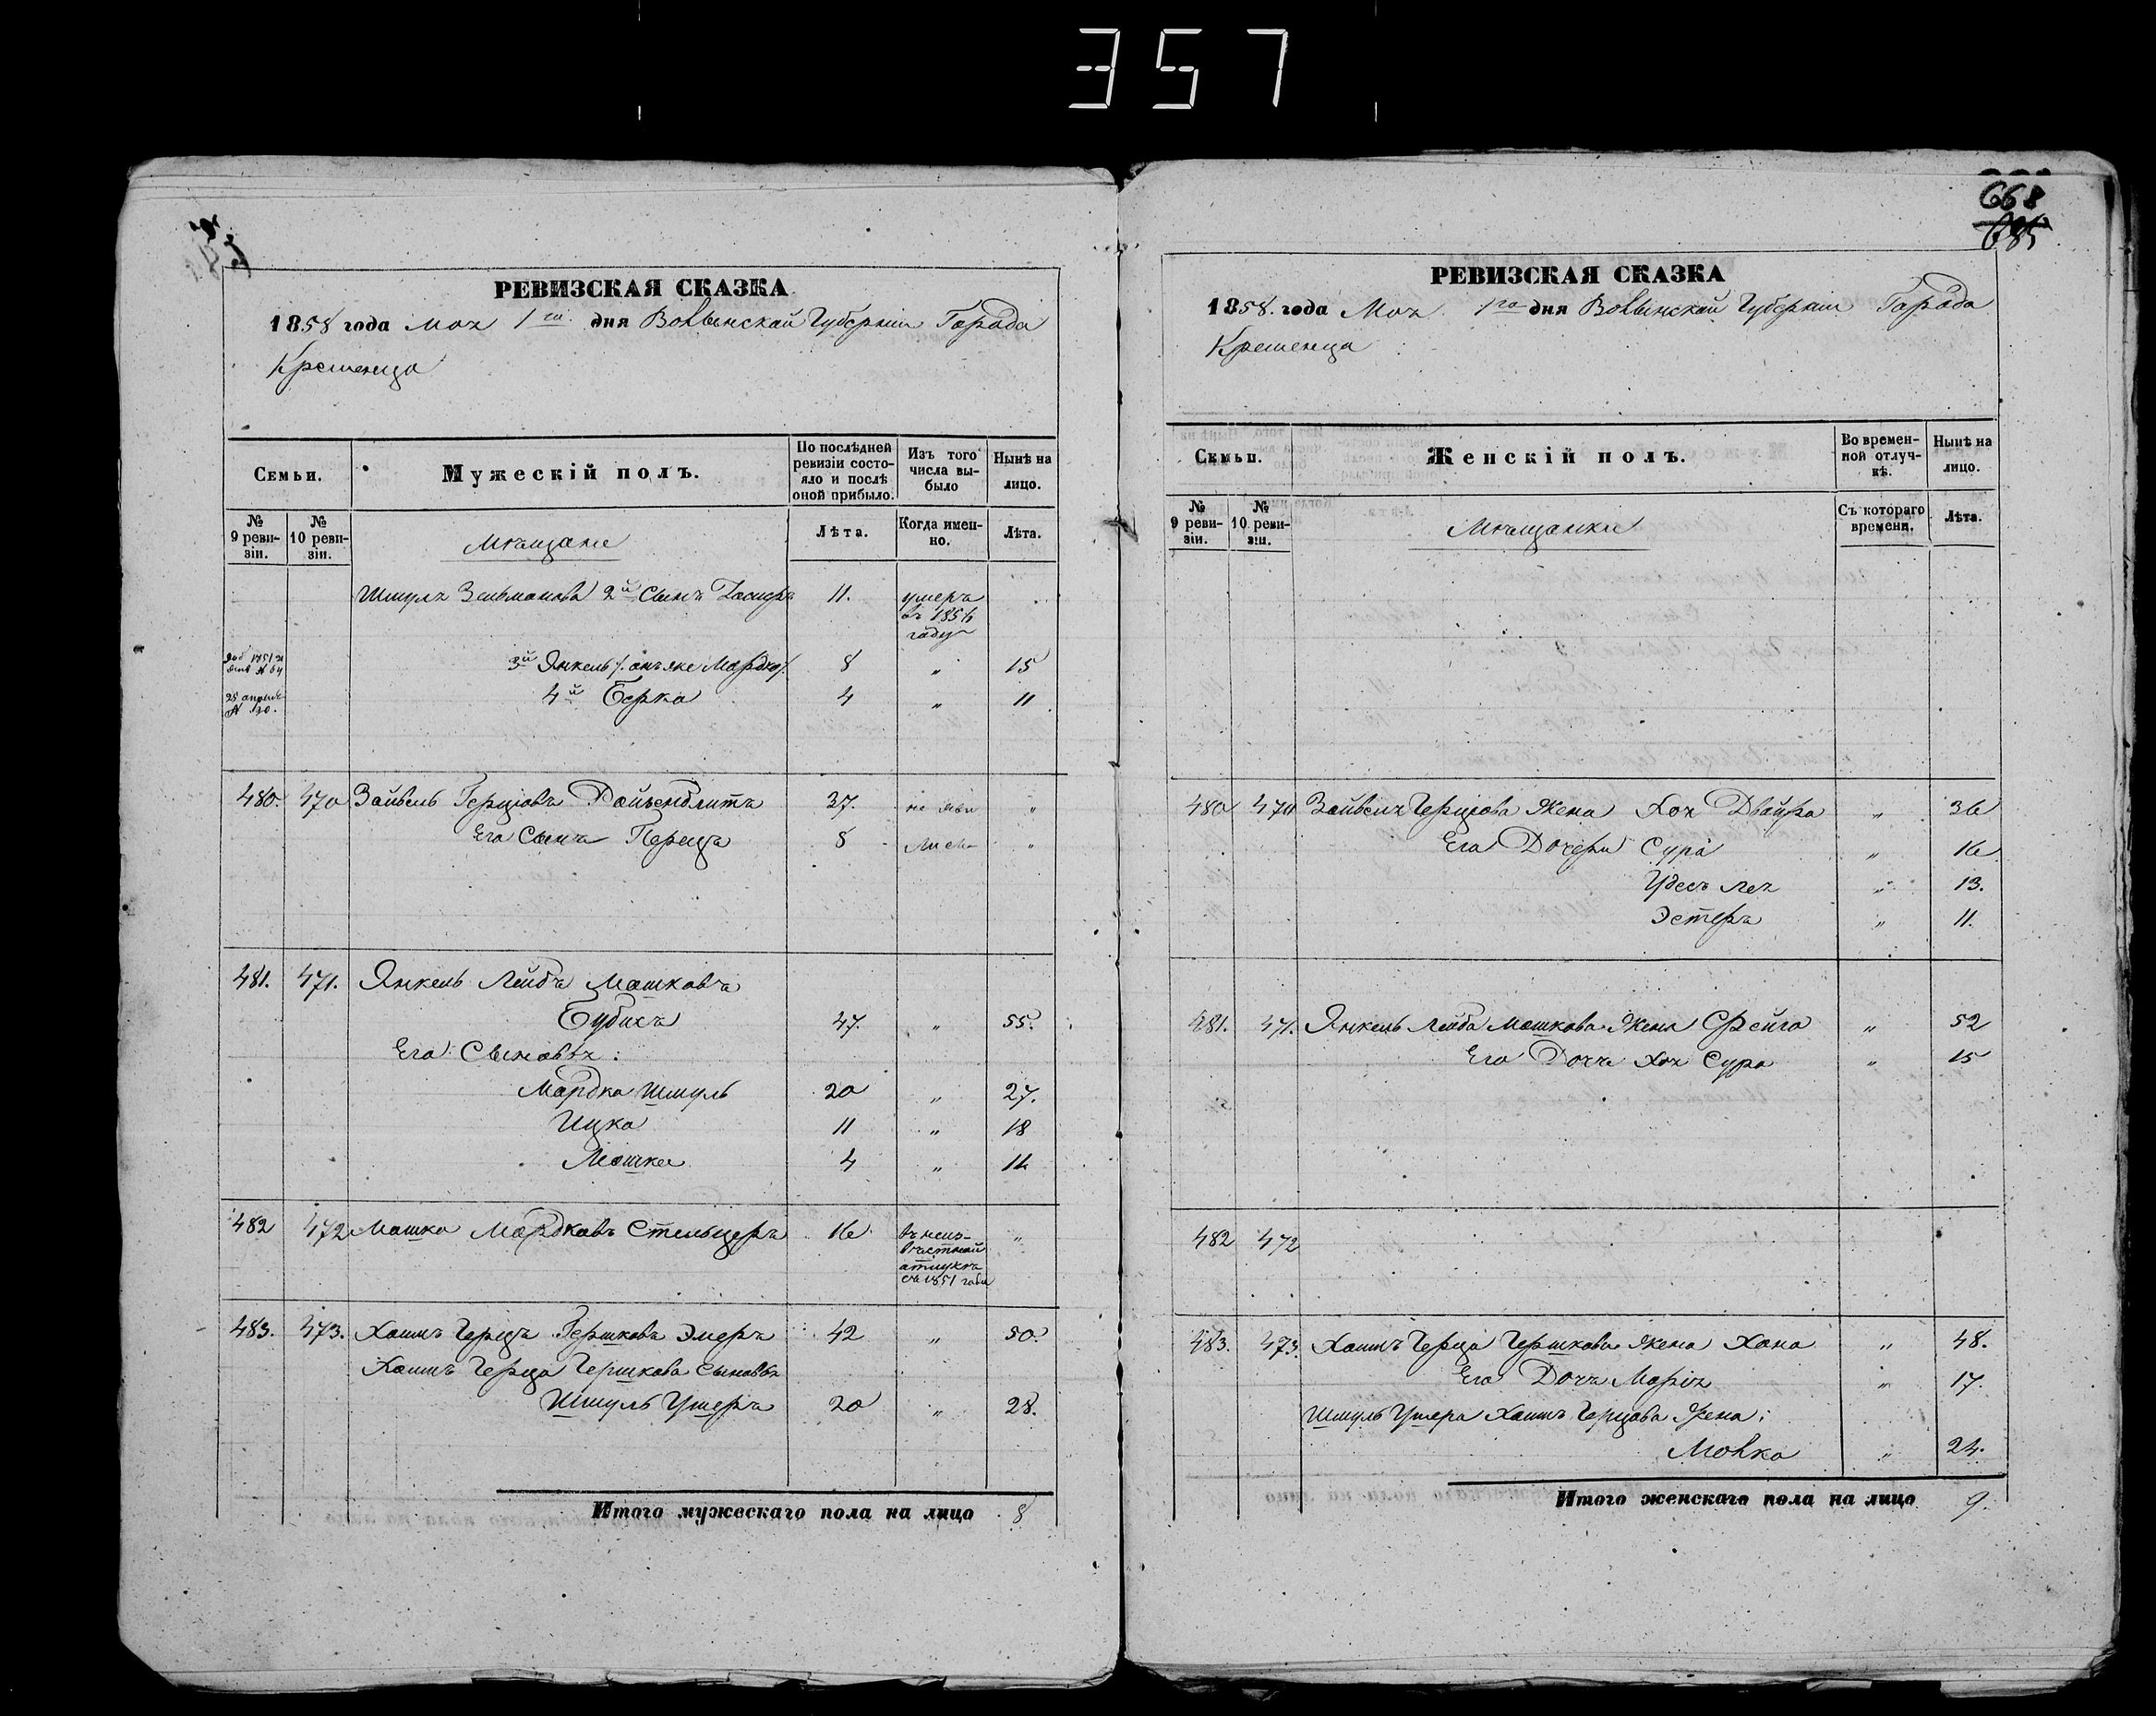 357
РЕВИЗСКАЯ СКАЗКА
1858 года Мая 1го дня Волынской Губернии Города
Кременца
Семьи.
Мужескій полъ.
По послѣдней ревизіи состояло и послѣ оной прибыло.
Изъ того числа выбыло
Нынѣ на лицо.
№ 9 ревизіи.
№ 10 ревизіи.
Мѣщане
Лѣта.
Когда именно.
Лѣта.
Шмуля Зельманова 2й Сынъ 11. умеръ въ года
3й Янкель Мордко 8 " 15
4й Берко 4 " 11
480. 470 Зайвель Герцовъ 37. не яви "
Его Сынъ Перецъ 8 "
481. 471. Янкель Лейбъ Мошковъ
47. " 55.
Его Сыновья:
Мордко Шмуль 20 " 27.
Ицко 11 " 18
Мошко 4 "
482 472 Мошко Мордковъ Стельцеръ 16 въ неизвѣстной отлучкѣ съ 1851 года "
483. 473. Хаимъ Герцъ Гершковъ 42 " 50.
Хаимъ Герца Гершкова Сыновья
Шмуль Ушеръ 20 " 28.
Итого мужескаго пола на лицо 8
668
685
РЕВИЗСКАЯ СКАЗКА
1858. года Мая 1го дня Волынской Губернии Города
Кременца
Семьи.
Женскій полъ.
Во временной отлучкѣ.
Нынѣ на лицо.
№ 9 ревизіи.
№ 10 ревизіи.
Мѣщанки
Съ котораго времени.
Лѣта.
480 470 Зайвеля Герцова Жена Хая Двойра " 36
Его Дочери Сура " 16
" 13.
Эстеръ " 11.
481. 471. Янкель Лейба Мошкова Жена Фейга " 52
Его Дочь Хая Сура " 15
482 472
483. 473. Хаимъ Герца Гершкова Жена Хана " 48.
Его Дочь Марія " 17.
Шмуль Ушера Хаимъ Герцова Жена:
Малка " 24.
Итого женскаго пола на лицо 9.